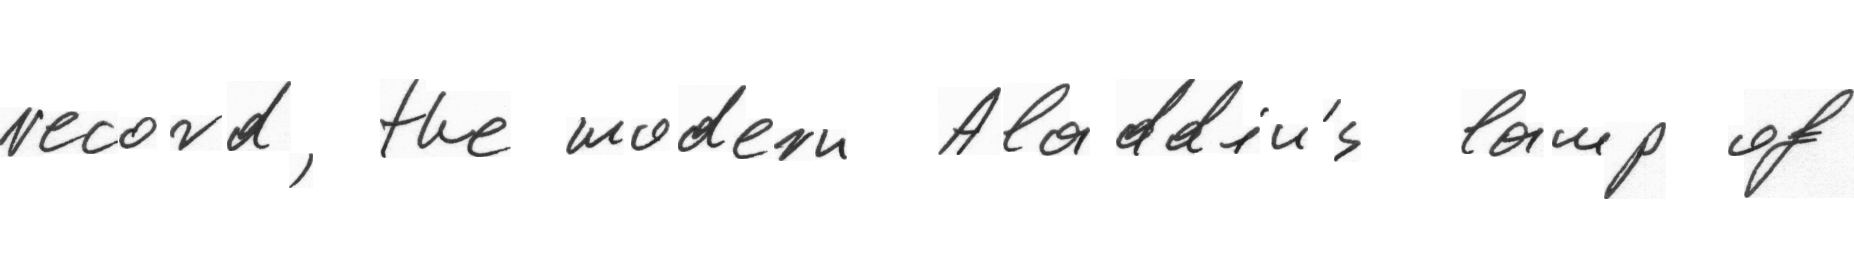 record, the modern Aladdin's lamp of